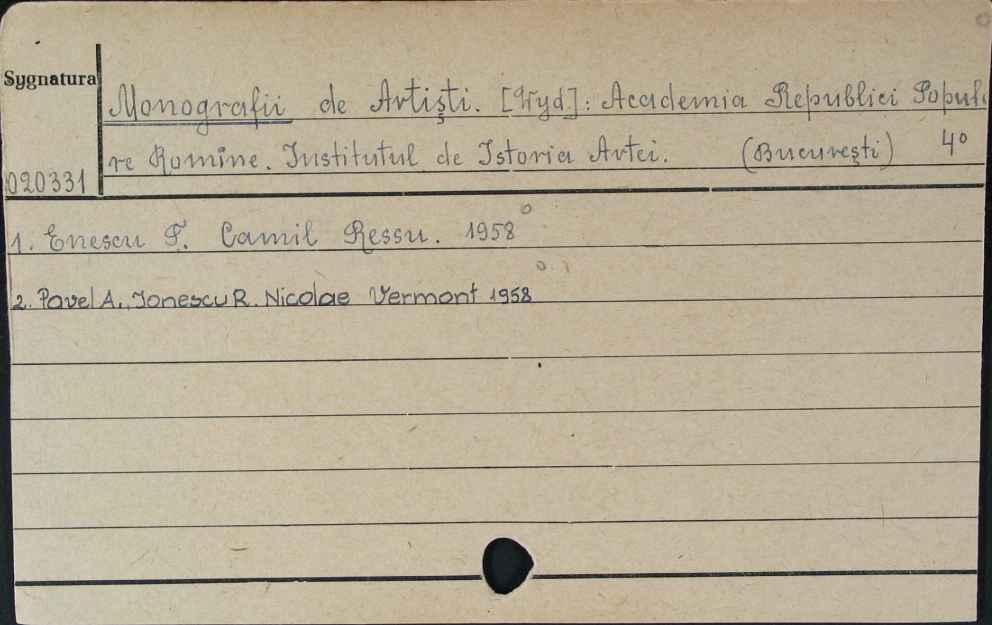 Sygnatura
Monografii de Artişti. [Wyd]: Academia Republici Popul.
re Romîne. Institutul de Istoria Artei. (Bucureşti) 4°
020331
1. Enescu F. Camil Ressu. 1958
2. Pavel A., Jonescu R. Nicolae Vermont 1958